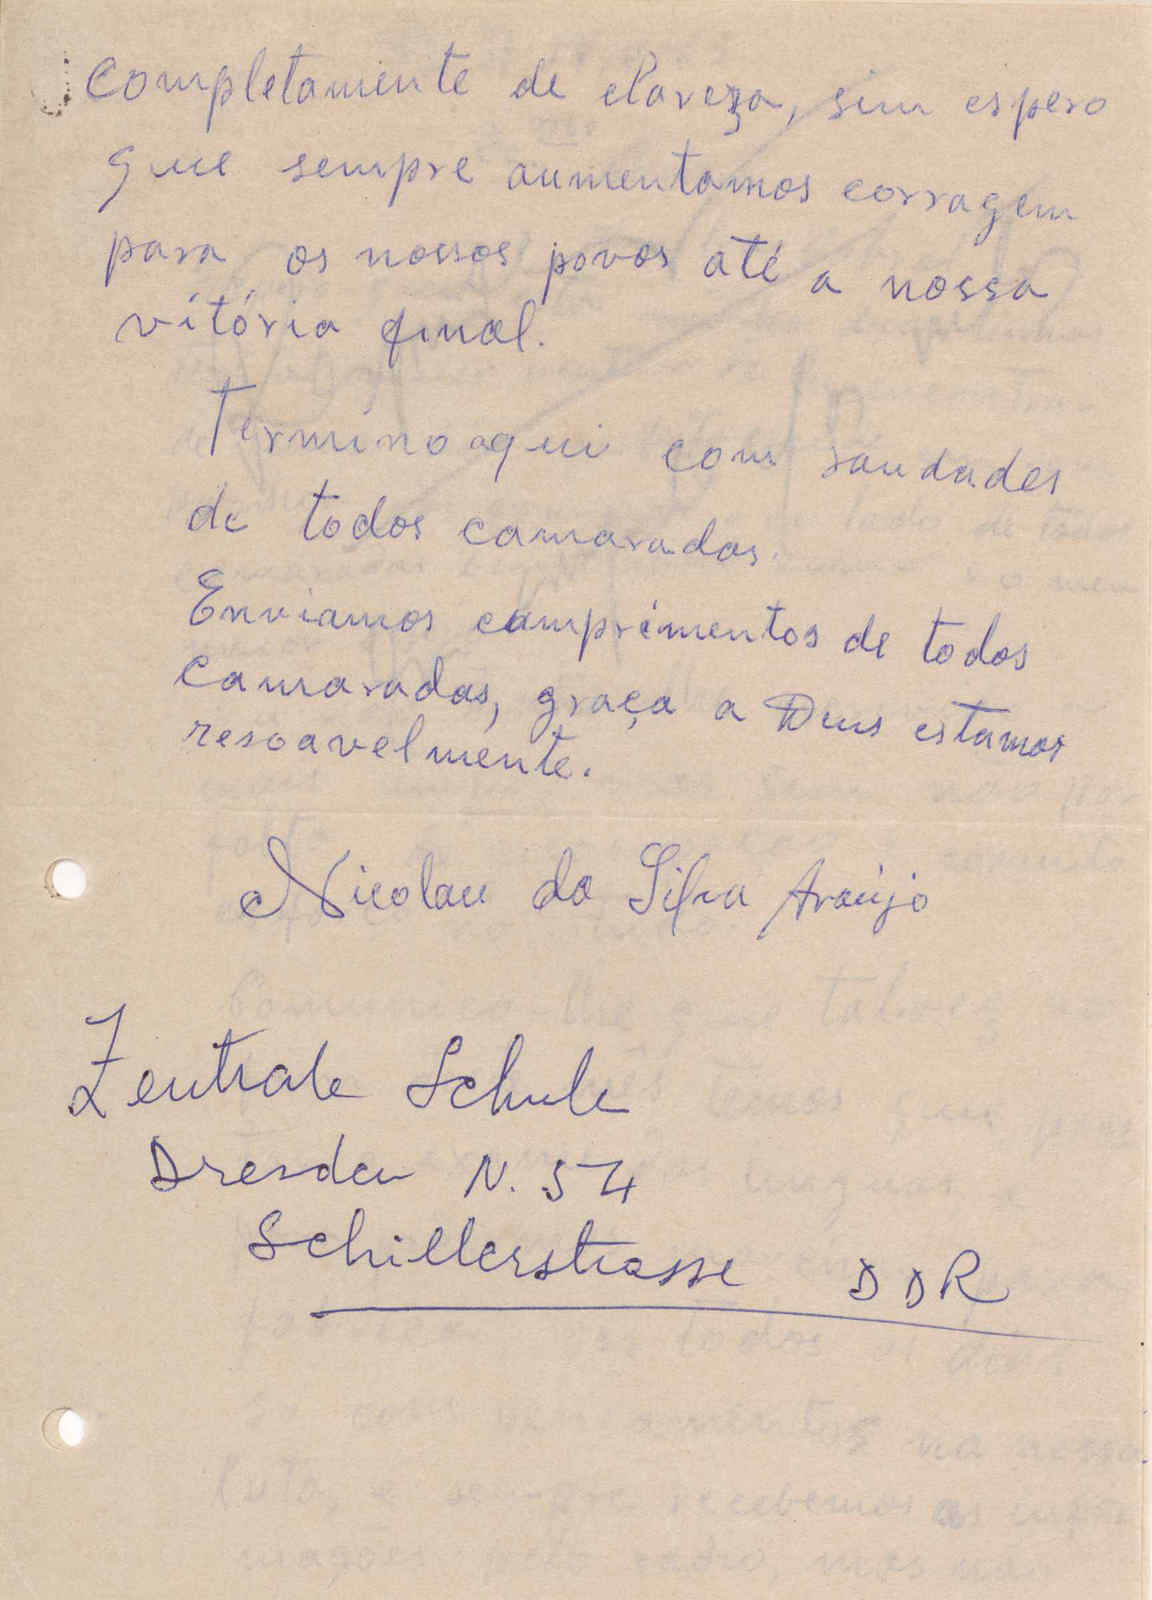 completamente de clareza, sim espero
que sempre aumentamos corragem
para os nossos povos até a nossa
vitória final.
Termino aqui com saudades
de todos camaradas.
Enviamos comprimentos de todos
camaradas, graça a Deus estamos
resoavelmente.
Nicolau da Silva Araújo
Zentrale Schule
Dresden N. 54
Schillerstrasse DDR